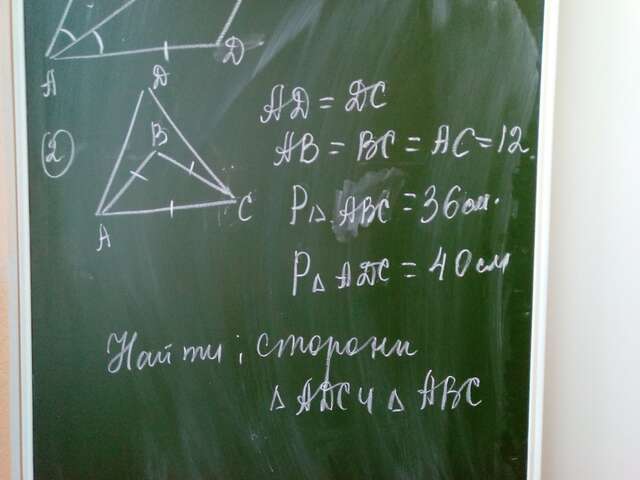 A
D
2
D
B
A
C
AD = DC
AB = BC = AC = 12
P△ ABC = 36 см.
P△ ADC = 40 см
Найти: стороны
△ ADC и △ ABC